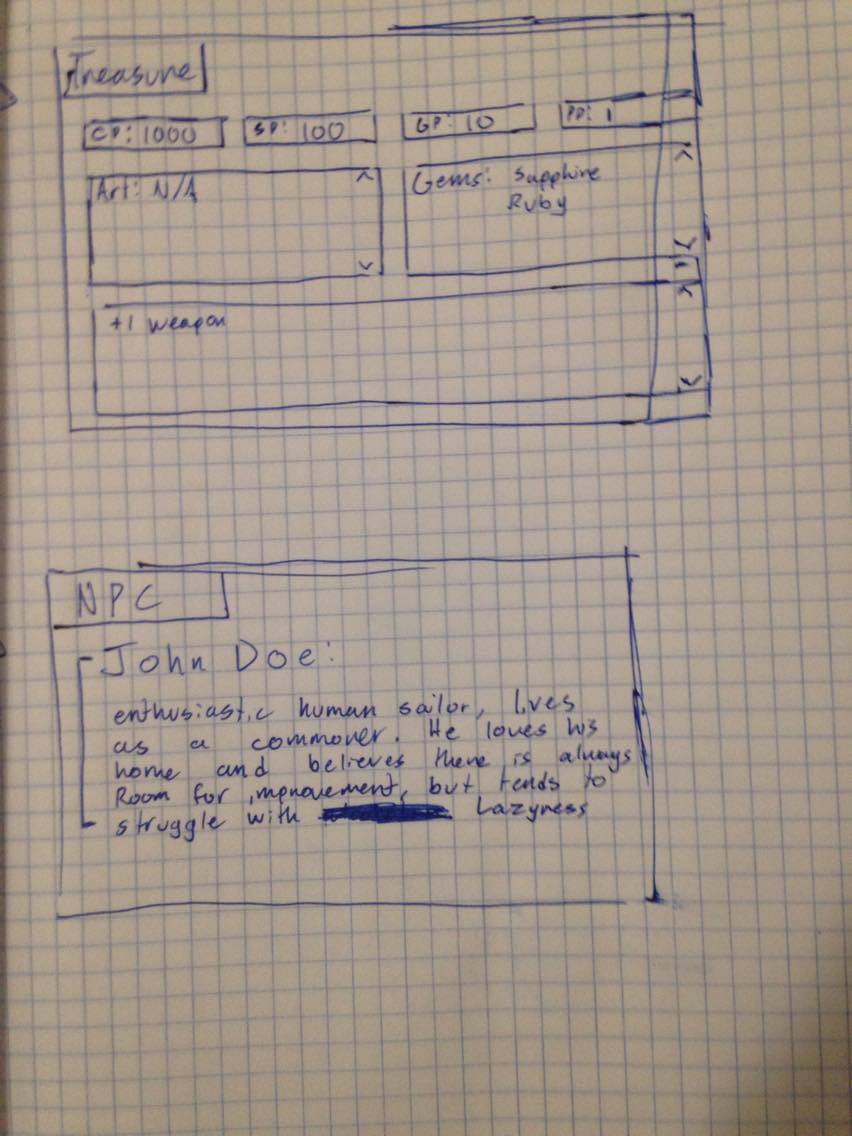 Treasure
CP: 1000 SP: 100 GP: 10 PP: 1
Art: N/A Gems: Sapphire
Ruby
+1 weapon
NPC
John Doe:
enthusiastic human sailor, lives
as a commoner. He loves his
home and believes there is always
Room for improvement, but tends to
struggle with Lazyness